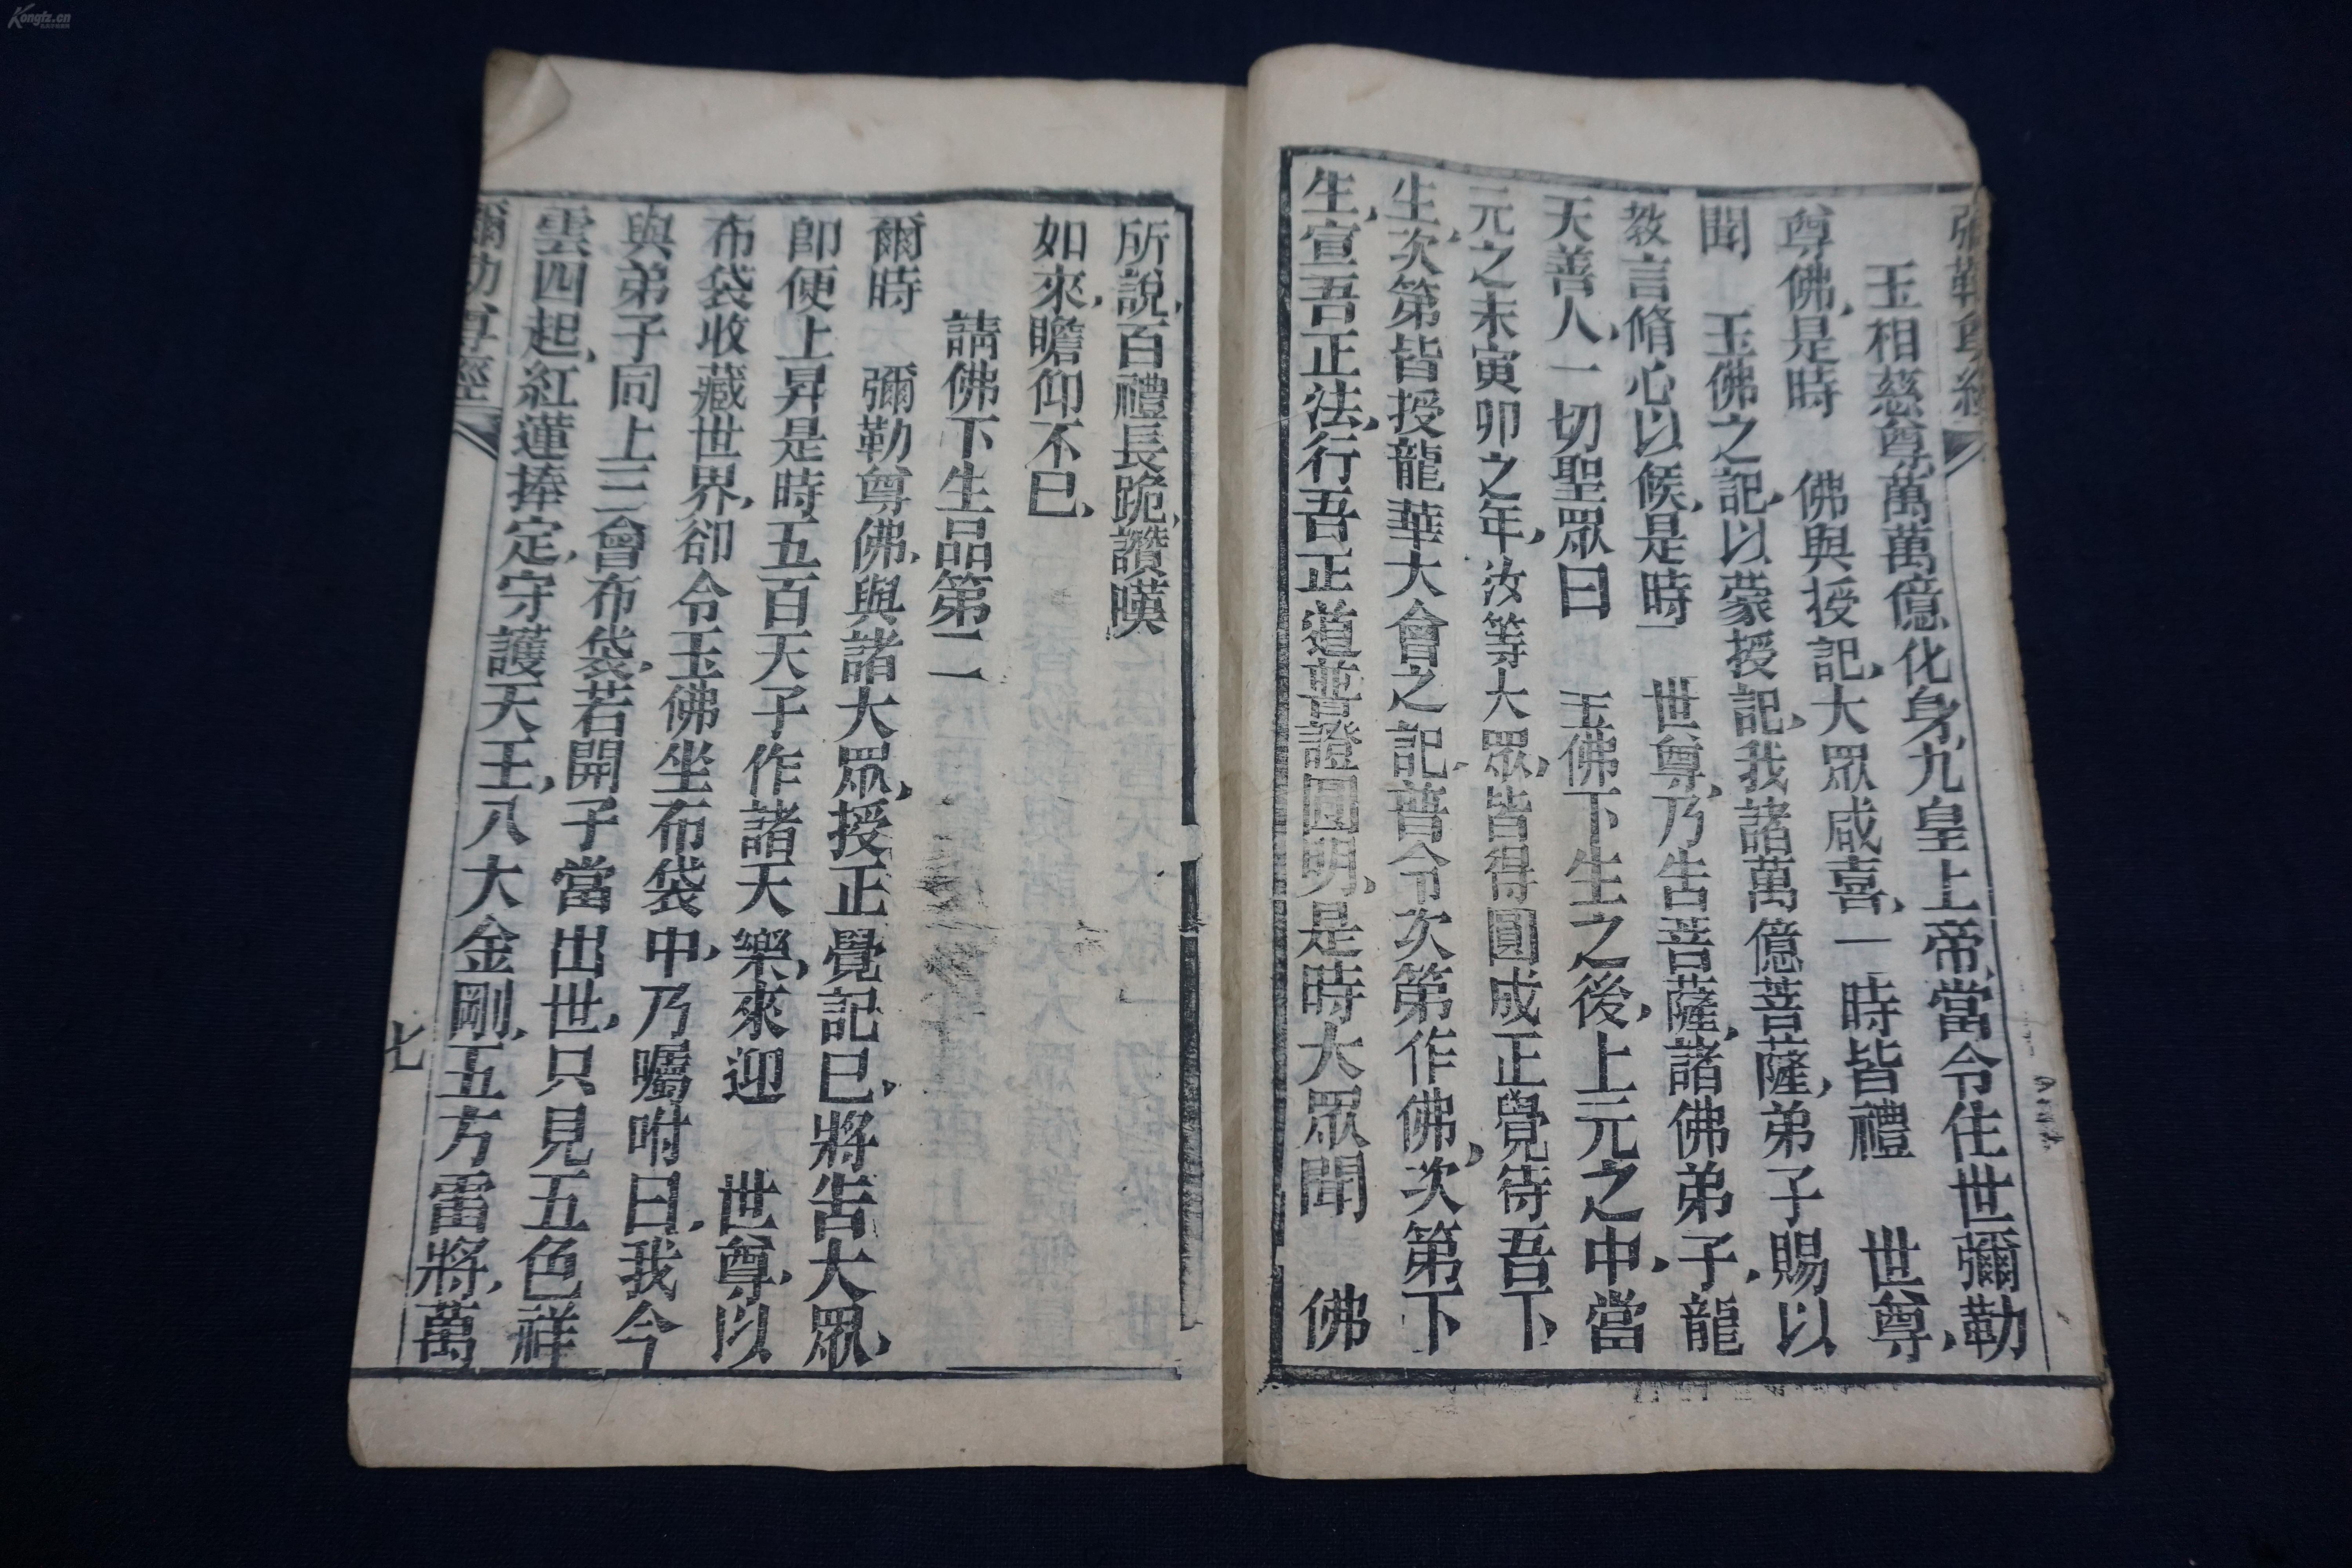 Kongfz.cn
彌勒尊經
玉相慈尊萬萬億化身,九皇上帝,當令住世彌勒
尊佛,是時 佛與授記,大眾咸喜,一時皆禮 世尊,
聞 玉佛之記,以蒙授記,我諸萬億菩薩,弟子賜以
教言脩心以候,是時 世尊,乃告菩薩,諸佛弟子,龍
天善人,一切聖眾曰 玉佛下生之後,上元之中,當
元之末寅卯之年,汝等大眾,皆得圓成正覺待吾下
生,次第皆授龍華大會之記,普令次第作佛,次第下
生,宣吾正法,行吾正道普證圓明,是時大眾聞 佛
所說,百禮長跪,讚嘆
如來,瞻仰不已,
請佛下生品第二
爾時 彌勒尊佛,與諸大眾,授正覺記已,將告大眾,
即便上昇是時五百天子作諸天樂,來迎 世尊,以
布袋收藏世界,卻令玉佛坐布袋中,乃囑咐曰,我今
與弟子同上三會布袋,若開子當出世,只見五色祥
雲四起,紅蓮捧定,守護天王,八大金剛,五方雷將,萬
彌勒尊經
七